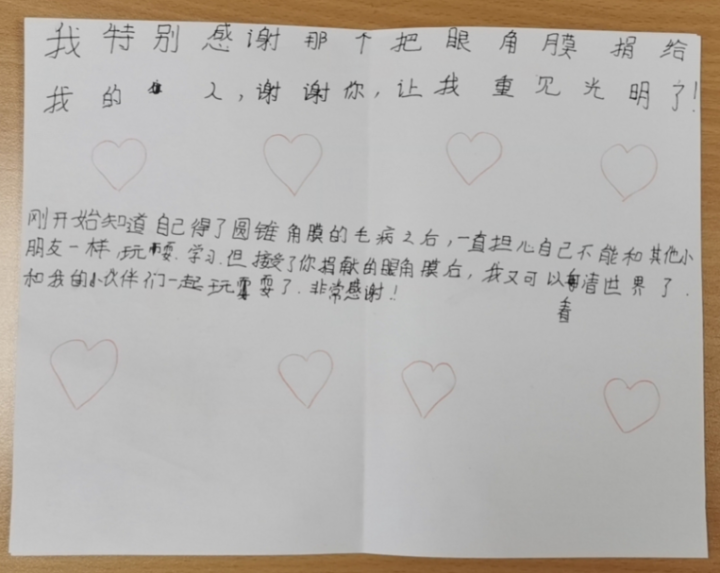 我特别感谢那个把眼角膜捐给
我的人,谢谢你,让我重见光明了!
刚开始知道自己得了圆锥角膜的毛病之后,一直担心自己不能和其他小
朋友一样,玩耍.学习.但接受了你捐献的眼角膜后,我又可以看清世界了.
和我的小伙伴们一起玩耍了.非常感谢!